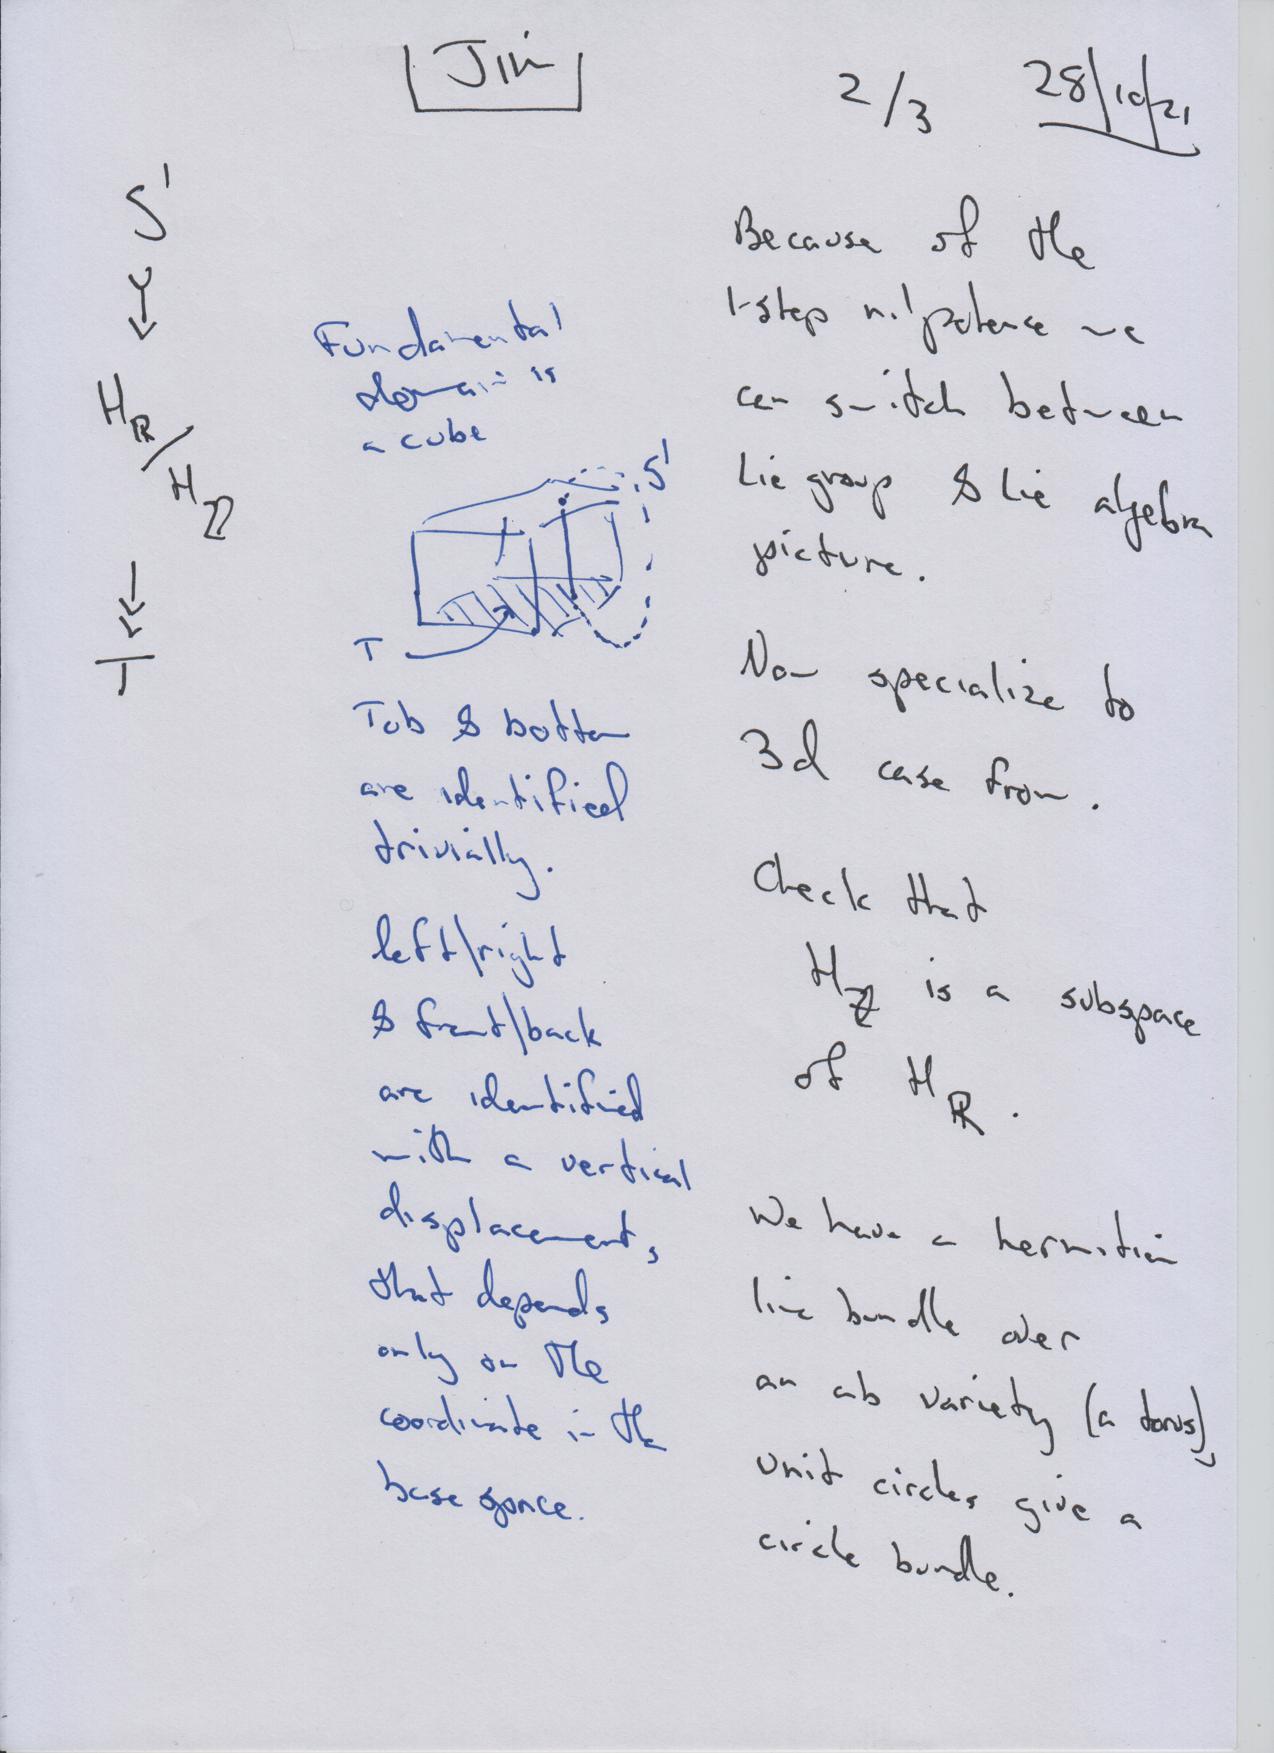 Jim
2/3
28/10/21
S¹
H_R/H_Z
T
Fundamental
domain is
a cube
S¹
T
Tob & bottom
are identified
trivially.
left/right
& front/back
are identified
with a vertical
displacement,
that depends
only on the
coordinate in the
base space.
Because of the
1-step nilpotence we
can switch between
Lie group & Lie algebra
picture.
Now specialize to
3d case from.
Check that
H_Z is a subspace
of H_R.
We have a hermitian
line bundle over
an ab variety (a torus),
unit circles give a
circle bundle.